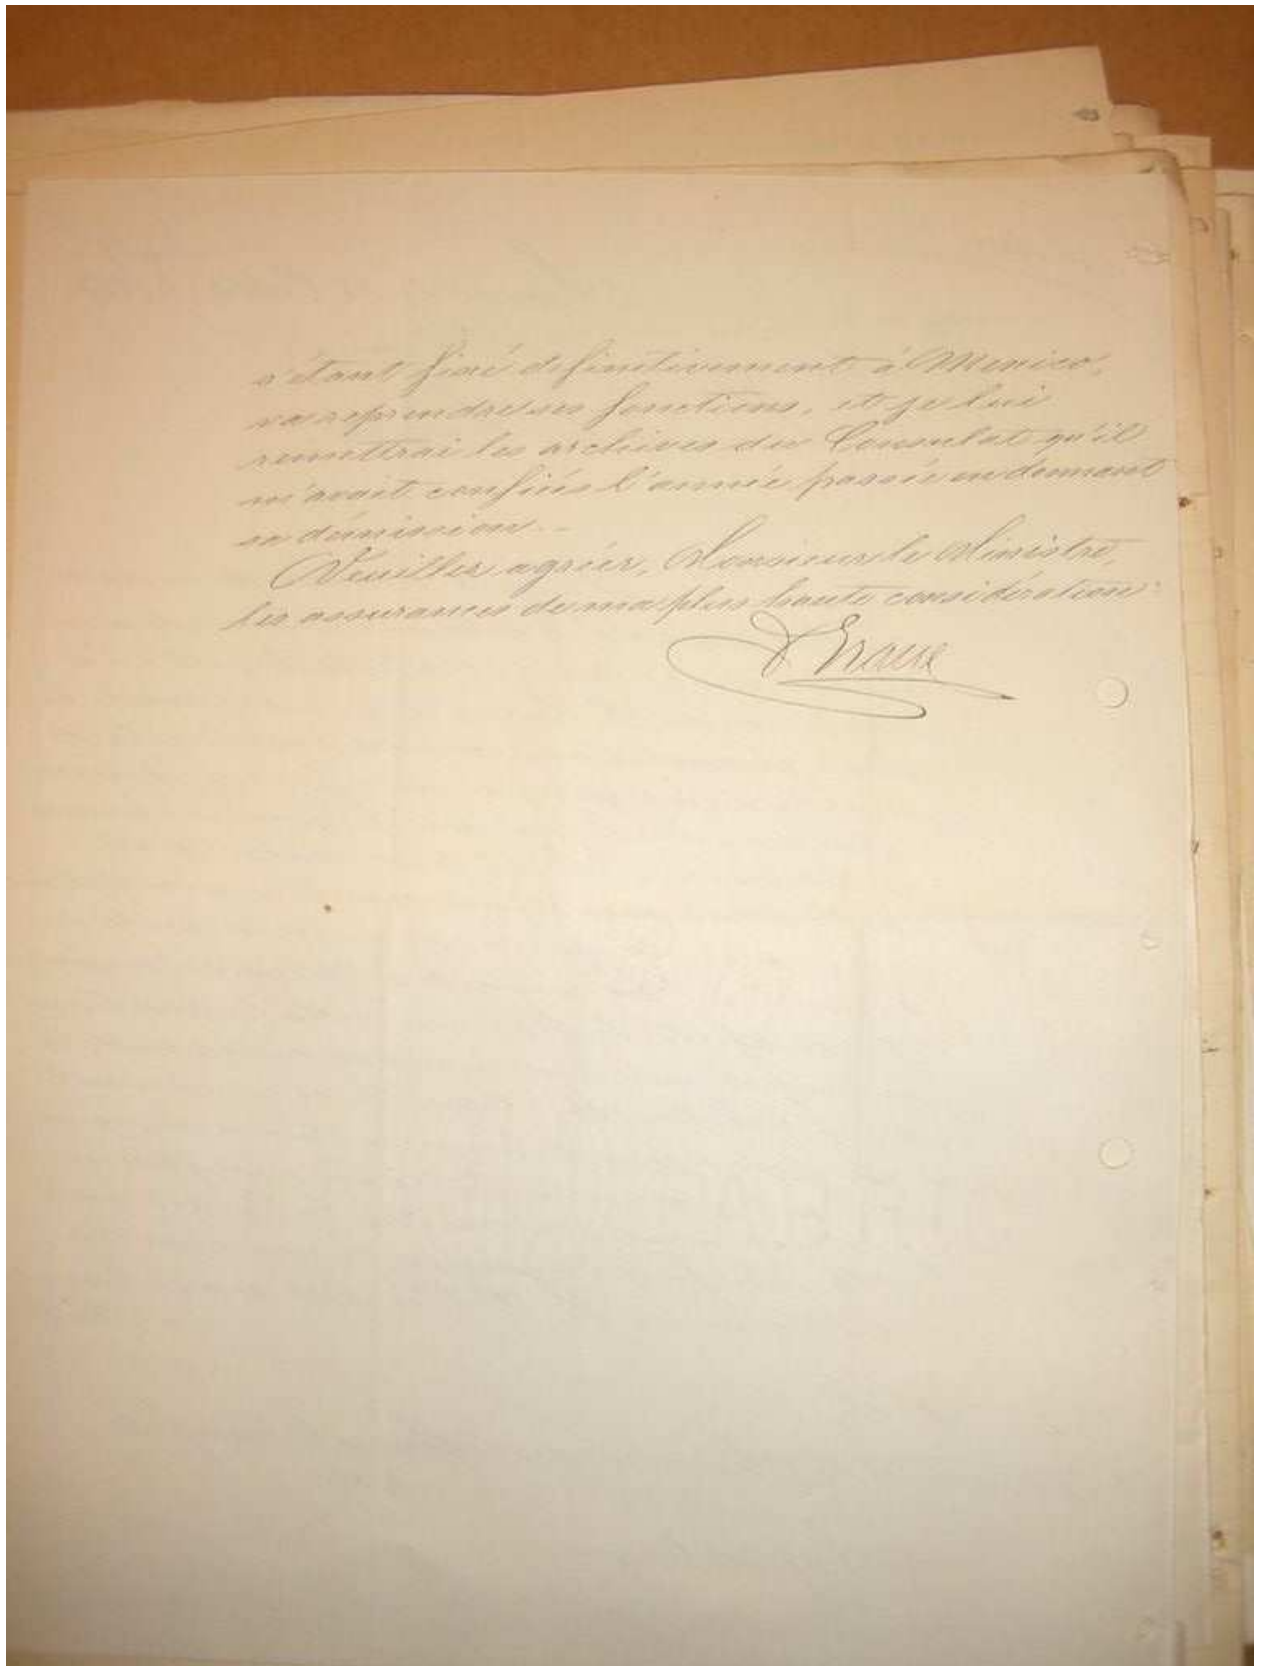 s'étant fixé définitivement à Mexico,
va reprendre ses fonctions, et je lui
remettrai les archives du Consulat qu'il
m'avait confiés l'année passée en donnant
sa démission.-
Veuillez agréer, Monsieur le Ministre,
les assurances de ma plus haute considération.